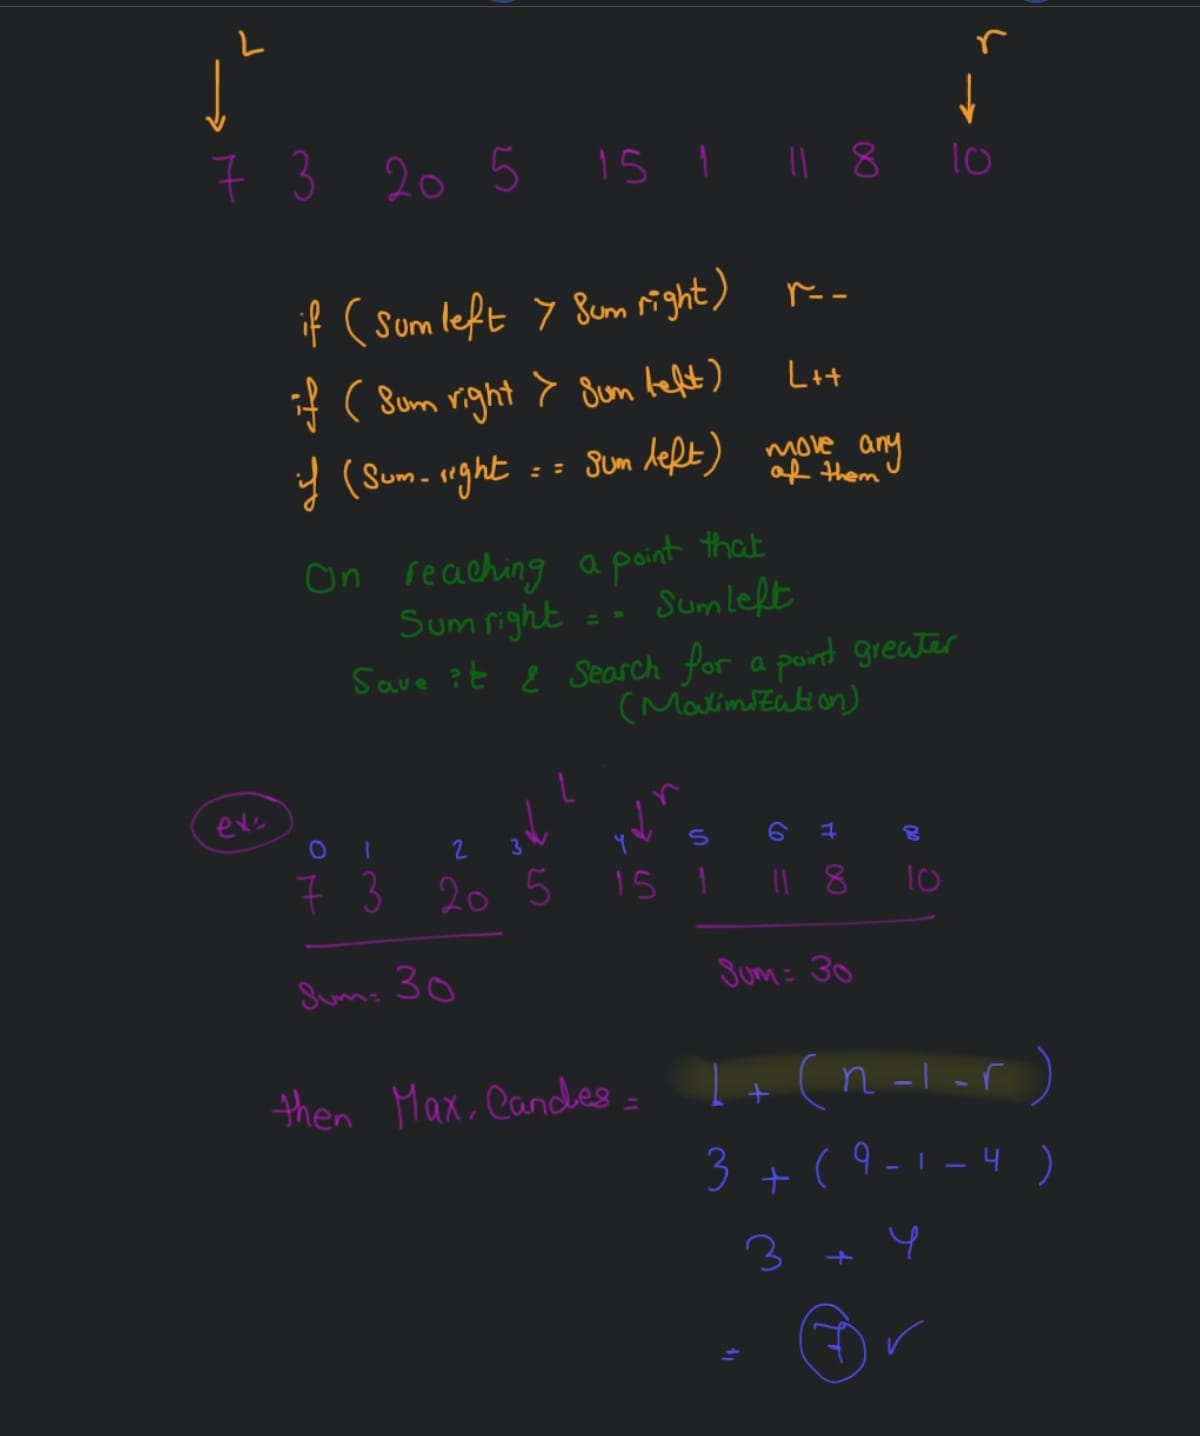 L r
7 3 20 5 15 1 11 8 10
if (Sum left > Sum right) r--
if (Sum right > Sum left) L++
if (Sum-right == Sum left) move any
of them
On reaching a point that
Sum right == Sum left
Save it & Search for a point greater
(Maximization)
L r
ex:
0 1 2 3 4 5 6 7 8
7 3 20 5 15 1 11 8 10
Sum= 30 Sum= 30
then Max. Candes = L + (n-1-r)
3 + (9-1-4)
3 + 4
= 7 ✓